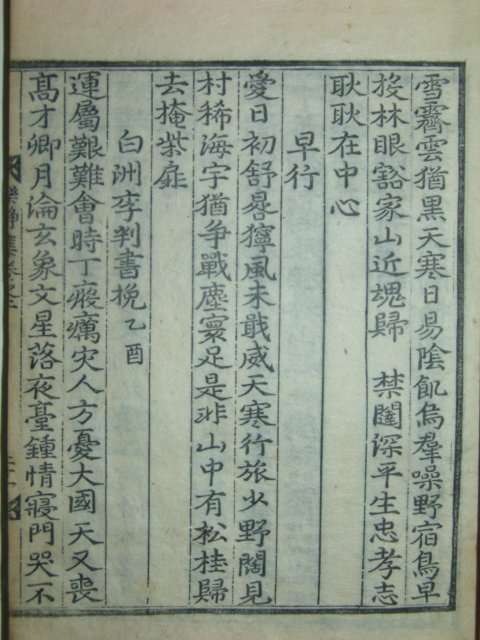 雪霽雲猶黑天寒日易陰飢烏羣噪野宿鳥早
投林眼豁家山近魂歸　禁闥深平生忠孝志
耿耿在中心
早行
愛日初舒晷獰風未戢威天寒行旅少野闊見
村稀海宇猶爭戰塵寰足是非山中有松桂歸
去掩柴扉
白洲李判書挽 乙酉
運屬艱難會時丁癘灾人方憂大國天又喪
高才卿月淪玄象文星落夜臺鍾情寢門哭不
樂靜集卷之